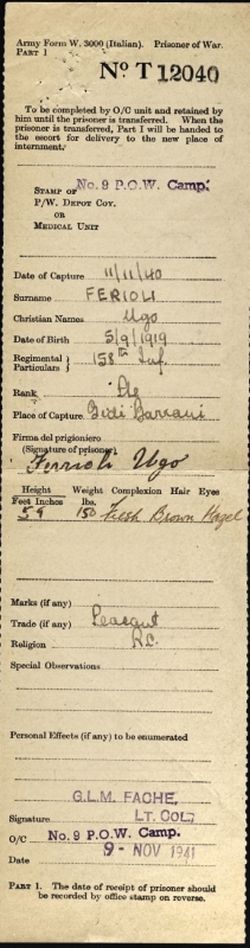 Army Form W. 3000 (Italian). Prisoner of War.
PART 1
No T 12040
To be completed by O/C unit and retained by
him until the prisoner is transferred. When the
prisoner is transferred, Part I will be handed to
the escort for delivery to the new place of
internment.
STAMP OF No. 9 P.O.W. Camp.
P/W. DEPOT COY.
OR
MEDICAL UNIT
Date of Capture 11/11/40
Surname FERIOLI
Christian Names Ugo
Date of Birth 5/9/1919
Regimental } 158th Inf.
Particulars }
Rank Pte
Place of Capture Sidi Barrani
Firma del prigioniero
(Signature of prisoner)
Ferrioli Ugo
Height Weight Complexion Hair Eyes
Feet Inches lbs.
5 9 150 Fresh Brown Hazel
Marks (if any)
Trade (if any) Peasant
Religion R.C.
Special Observations
Personal Effects (if any) to be enumerated
G.L.M. FACHE,
Signature LT. COL;
O/C No. 9 P.O.W. Camp.
Date 9- NOV 1941
PART 1. The date of receipt of prisoner should
be recorded by office stamp on reverse.